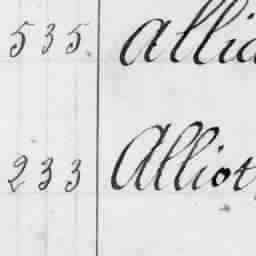 535. Allia
233 Alliot